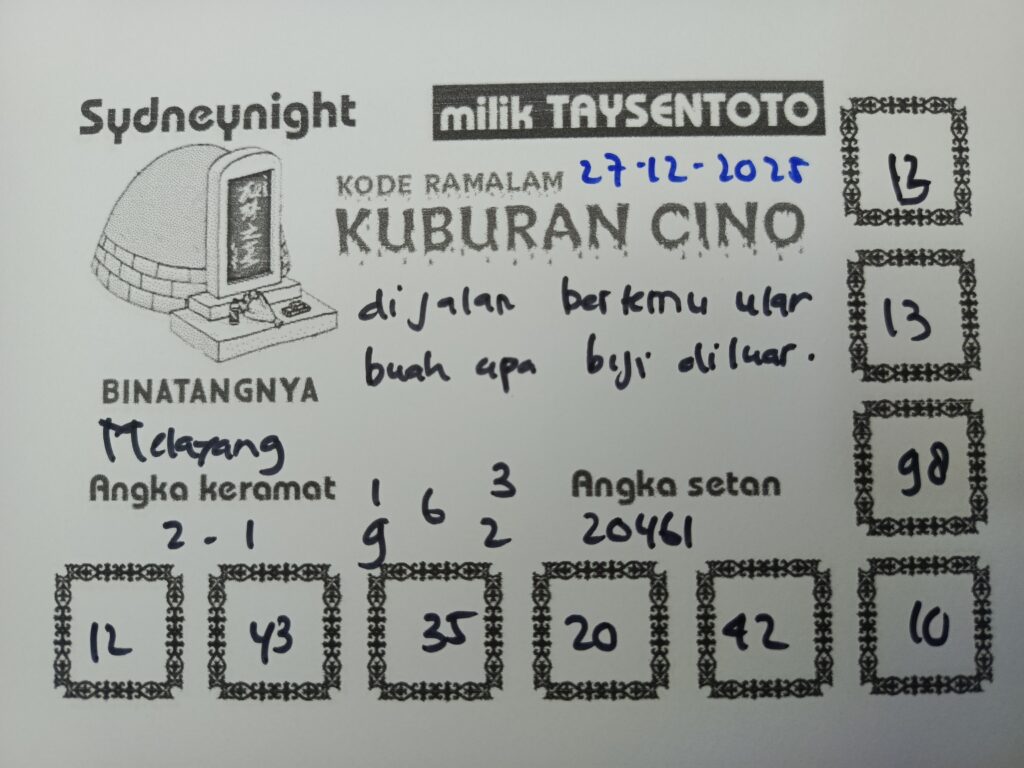 Sydneynight
milik TAYSENTOTO
KODE RAMALAM 27-12-2025
KUBURAN CINO
di jalan bertemu ular
buah apa biji diluar.
BINATANGNYA
Melayang
Angka keramat
2 - 1
1 3
6
9 2
Angka setan
20461
13
13
98
12 43 35 20 42 10